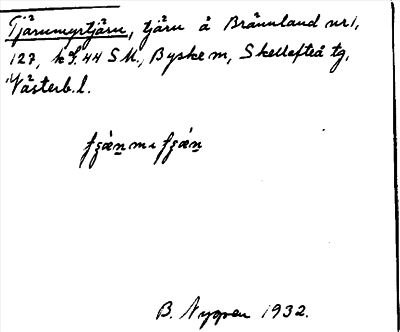 Tjärnmyrtjärn, tjärn å Brännland nr 1,
127, kS. 44 SM., Byske m, Skellefteå tg,
Västerb. l.
B. Nygren 1932.